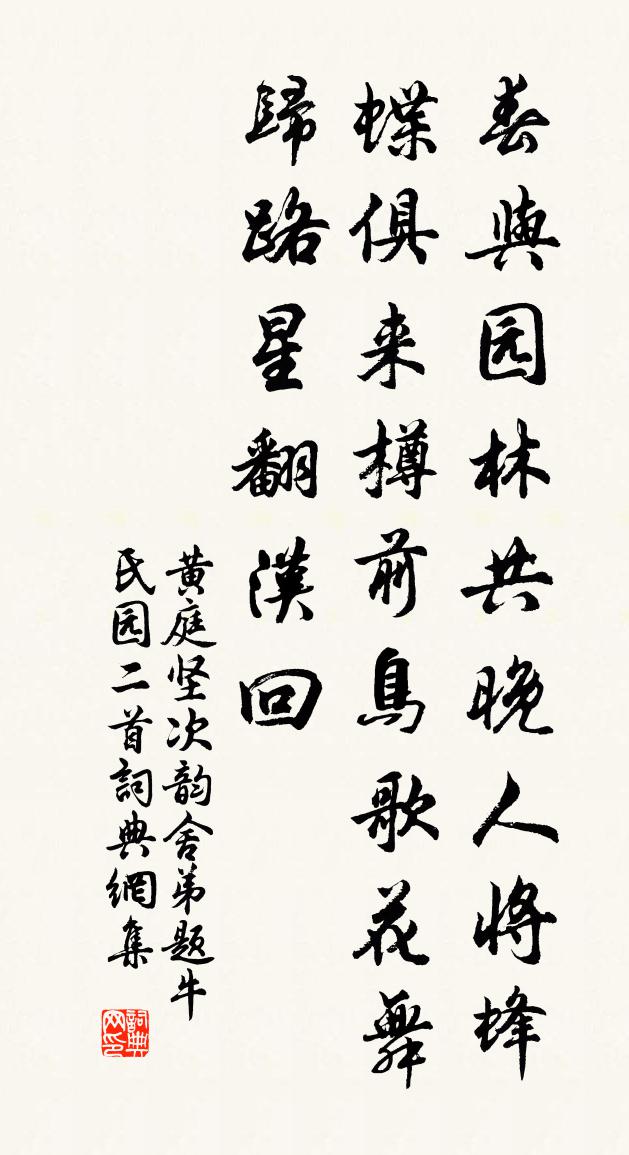 春與园林共晚人将蜂
蝶俱来樽前鳥歌花舞
歸路星翻漢回
黄庭坚次韵舍弟题牛
民园二首詞典網集
詞典
网印